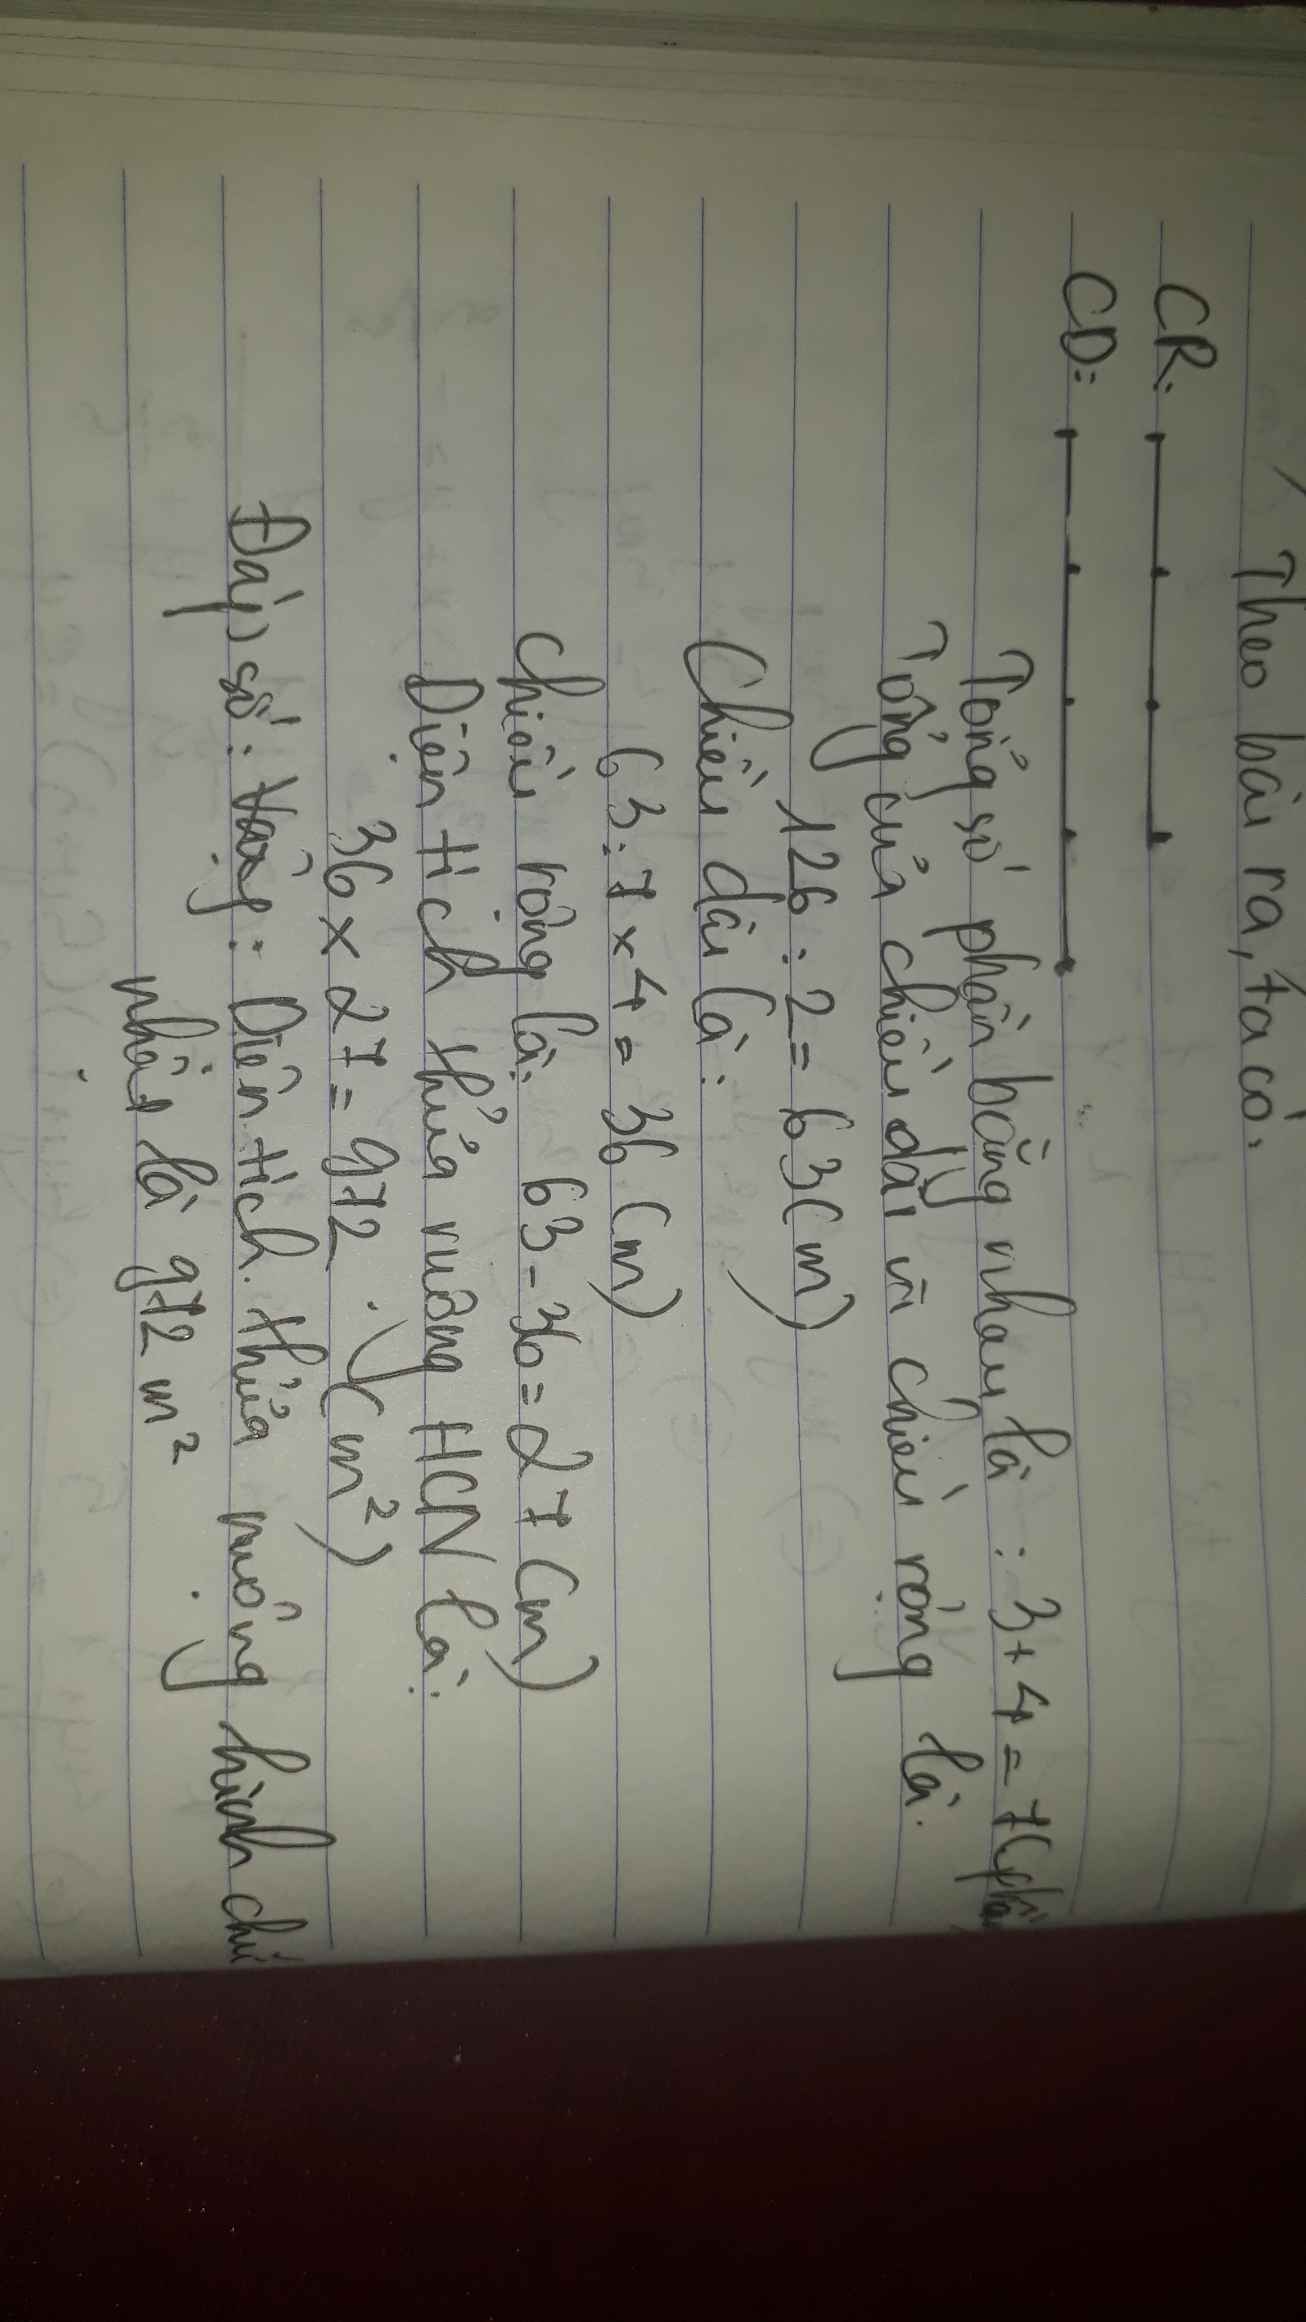 Theo bài ra, ta có:
CR:
CD:
Tổng số phần bằng nhau là: 3+4=7(phần
Tổng của chiều dài và chiều rộng là:
126:2=63(m)
Chiều dài là:
63:7×4=36(m)
Chiều rộng là: 63-36=27(m)
Diện tích thửa ruộng HCN là:
36×27=972 (m²)
Đáp số: Diện tích thửa ruộng hình chữ
nhật là 972 m²